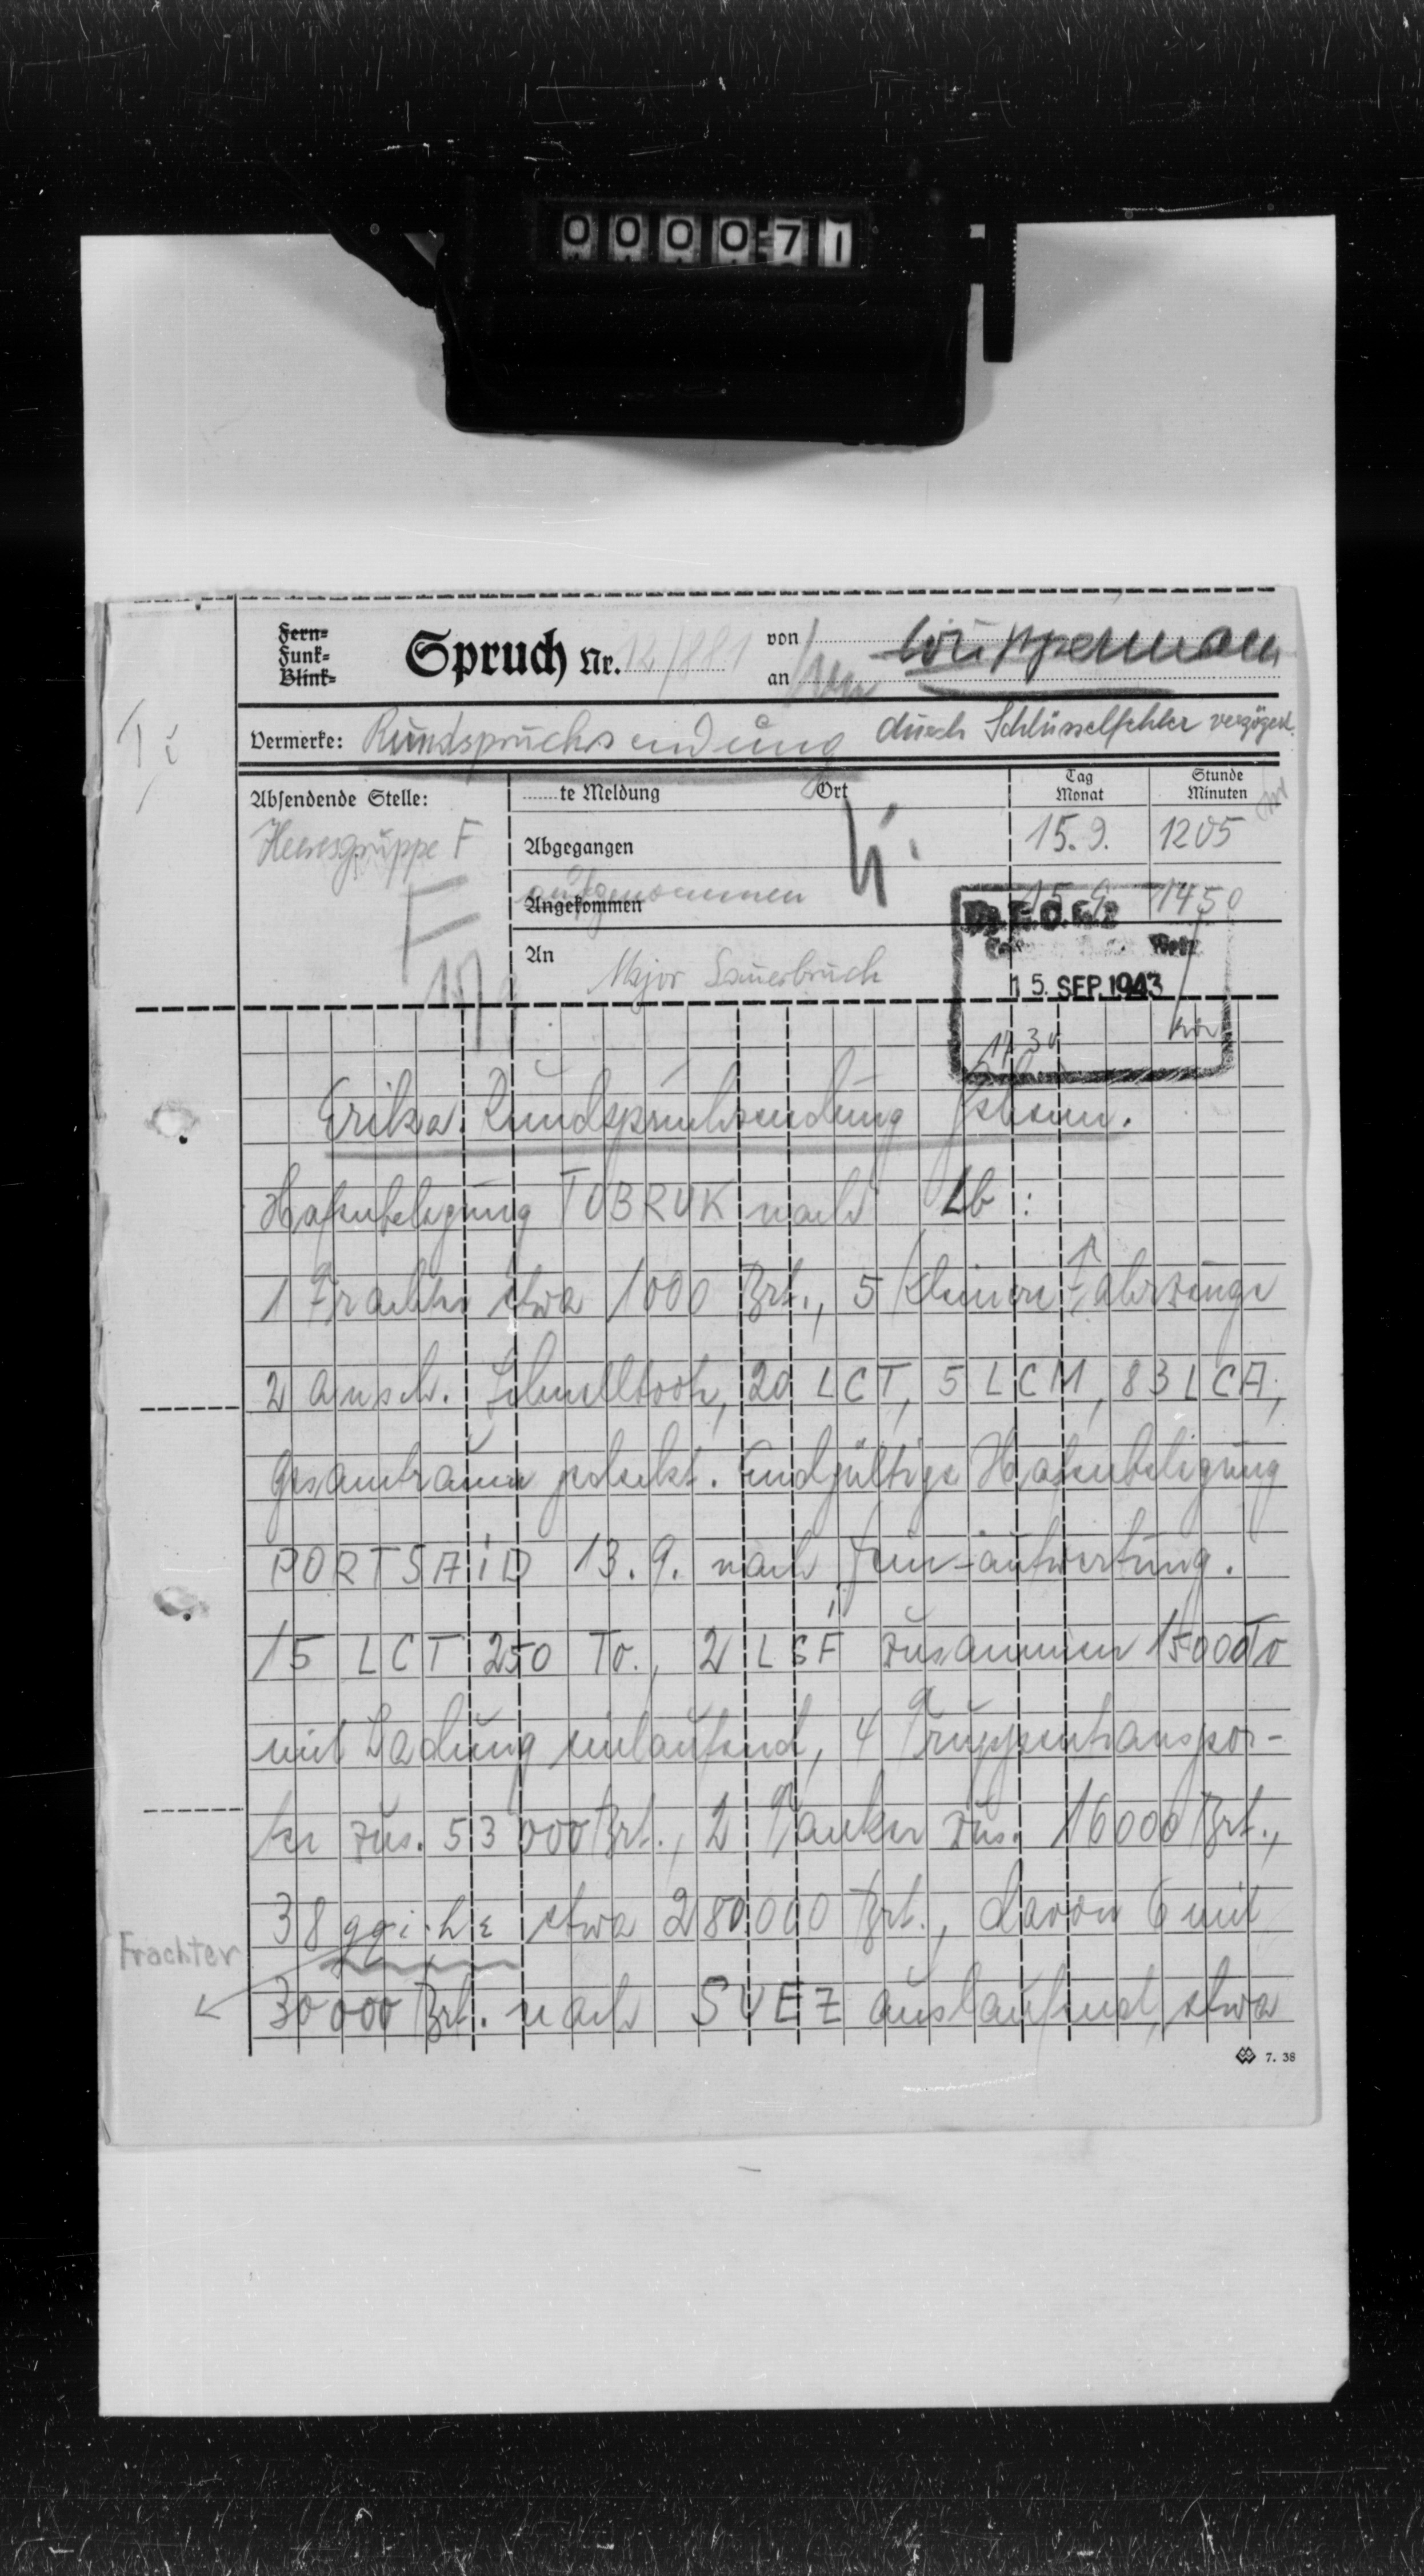 000071
Fern=
Funk=
Blink=
Spruch Nr. 12/881
von
an
Wüppermann
Vermerke: Rundspruchsendung durch Schlüsselfehler verzögert.
Absendende Stelle:
Heeresgruppe F
F
te Meldung
Ort
Tag
Monat
Stunde
Minuten
Abgegangen
15.9.
1205
aufgenommen
Angekommen
15.9.
1450
An
Major Sauerbruch
15. SEP. 1943
Erika Rundspruchsendung
Hafenbelegung TOBRUK nach Lb:
1 Frachter etwa 1000 Brt., 5 kleinere Fahrzeuge
2 ansch. Schnellboote, 20 LCT, 5 LCM, 83 LCA,
Gesamtraum gedeckt. Endgültige Hafenbelegung
PORTSAID 13.9. nach Feinauswertung.
15 LCT 250 To., 2 LSF zusammen 15000 To
mit Ladung einlaufend, 4 Truppentranspor-
ter zus. 53000 Brt., 2 Tanker zus. 16000 Brt.,
38 ggi.he etwa 280000 Brt., davon 6 mit
Frachter
30000 Brt. nach SUEZ auslaufend, etwa
7. 38